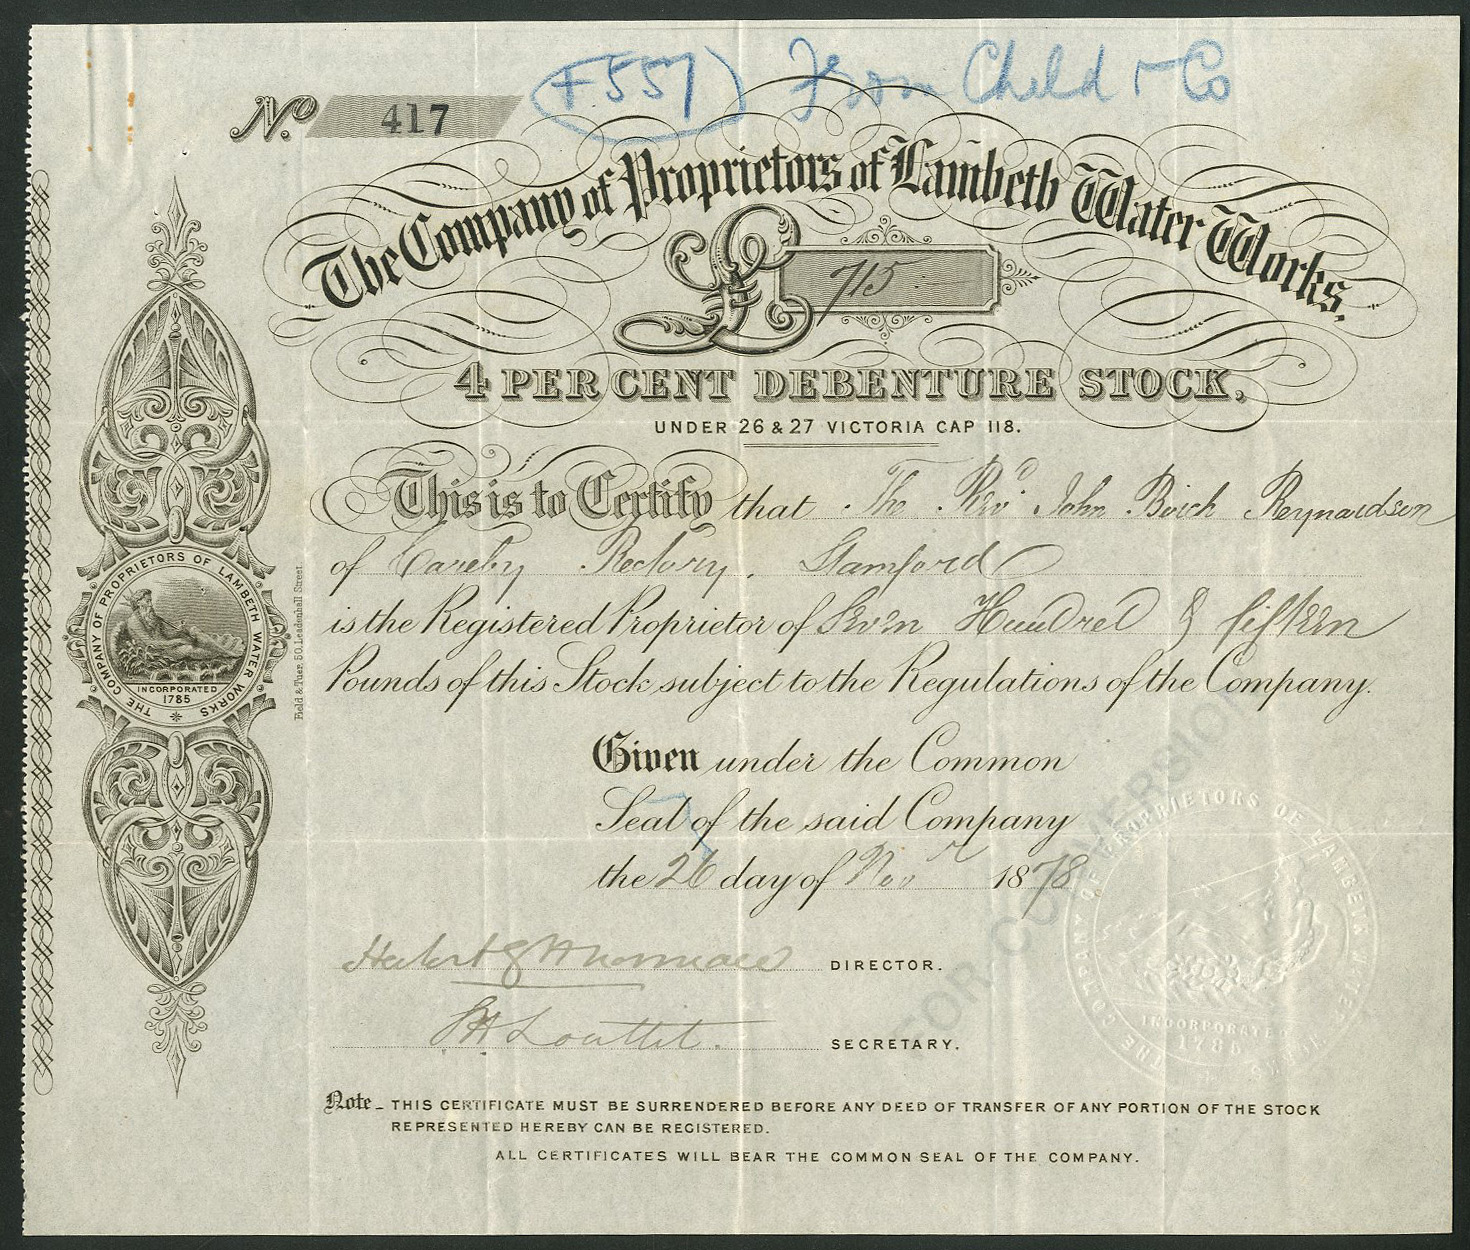 (F557) From Child & Co
No. 417
The Company of Proprietors of Lambeth Water Works.
£ 715
4 PER CENT DEBENTURE STOCK,
UNDER 26 & 27 VICTORIA CAP 118.
This is to Certify that The Revd. John Birch Reynardson
of Careby Rectory, Stamford
is the Registered Proprietor of Seven Hundred & fifteen
Pounds of this Stock subject to the Regulations of the Company.
Given under the Common
Seal of the said Company
the 26 day of Novr 1878
DIRECTOR.
S.H. Louttit. SECRETARY.
Note_ THIS CERTIFICATE MUST BE SURRENDERED BEFORE ANY DEED OF TRANSFER OF ANY PORTION OF THE STOCK
REPRESENTED HEREBY CAN BE REGISTERED.
ALL CERTIFICATES WILL BEAR THE COMMON SEAL OF THE COMPANY.
THE COMPANY OF PROPRIETORS OF LAMBETH WATER WORKS
INCORPORATED
1785
Field & Tuer. 50. Leadenhall Street.
FOR CONVERSION
THE COMPANY OF PROPRIETORS OF LAMBETH WATER WORKS
INCORPORATED
1785